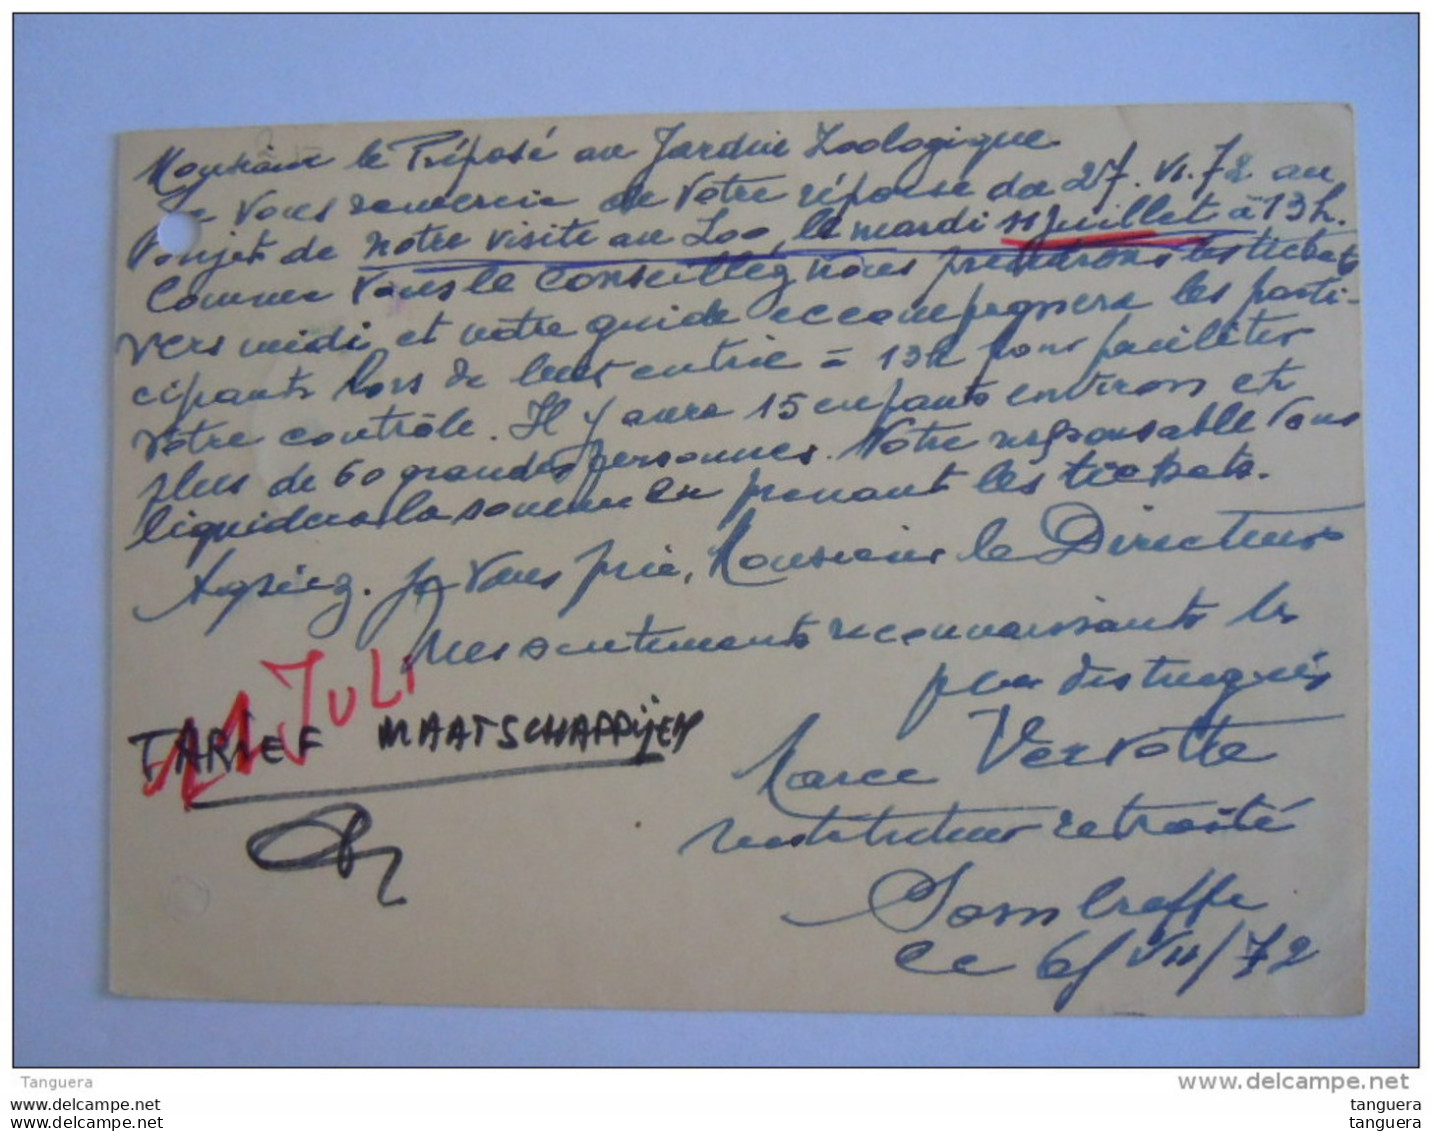 Monsieur le Préposé au Jardin Zoologique
Je Vous remercie de Votre réponse du 27.VI.72 au
sujet de notre visite au Zoo, le mardi 11 juillet à 13h.
Comme Vous le conseillez nous prendrons les tickets
vers midi et notre guide accompagnera les parti-
cipants lors de leur entrée = 13h pour faciliter
votre contrôle. Il y aura 15 enfants environ et
plus de 60 grandes personnes. Notre responsable Vous
liquidera la somme en prenant les tickets.
Agréez, je Vous prie, Monsieur le Directeur
mes sentiments reconnaissants les
plus distingués
11 JULI
TARIEF MAATSCHAPPIJEN
Verlotte
instituteur retraité
Sombreffe
ce 6/VII/72
Tanguera
www.delcampe.net
tanguera
tanguera
tanguera
tanguera